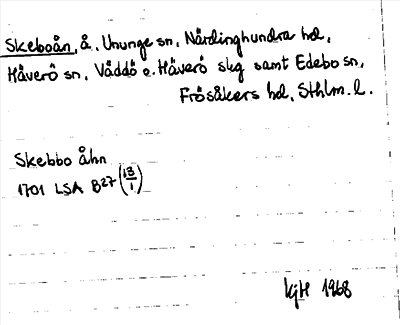 Skeboån, å, Ununge sn, Närdinghundra hd,
Häverö sn, Väddö o. Häverö skg samt Edebo sn,
Frösåkers hd, Sthlm. l.
Skebbo åhn
1701 LSA B27 (13/1)
KjH 1968